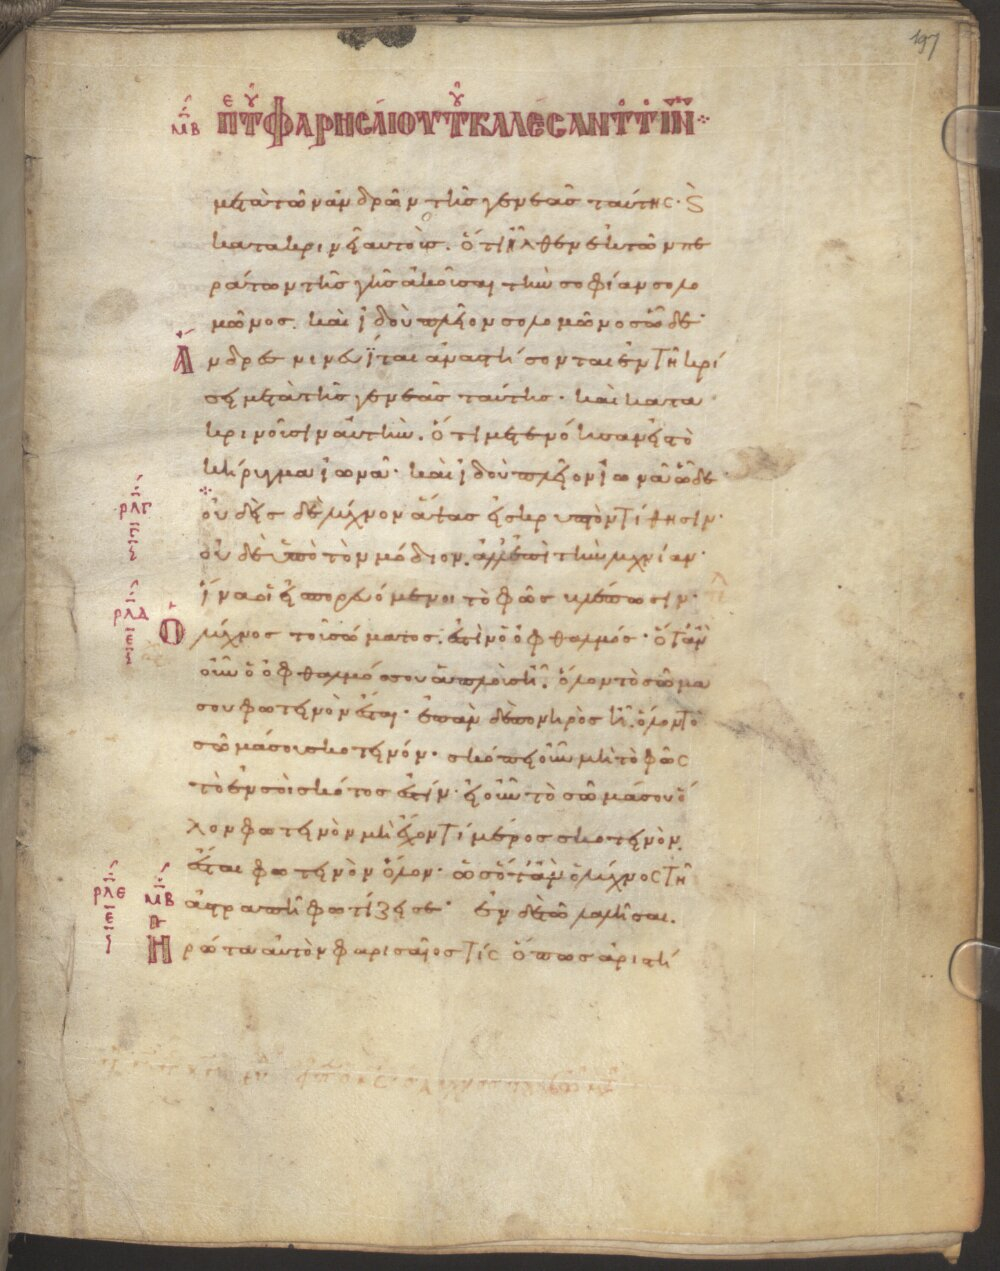 197
μβ π τ φαρησαίου τ καλέσαντ τ ιν
μετὰ τῶν ἀνδρῶν τῆς γενεᾶς ταύτης· ϗ
κατακρινεῖ αὐτούς. ὅτι ἦλθεν ἐκ τῶν πε
ράτων τῆς γῆς ἀκοῦσαι τὴν σοφίαν σολο
μῶνος. καὶ ἰδοὺ πλεῖον σολομῶνος ὧδε·
Ἄνδρες νινευῖται ἀναστήσονται ἐν τῆ κρί
σει μετὰ τῆς γενεᾶς ταύτης· καὶ κατα
κρινοῦσιν αὐτὴν. ὅτι μετενόησαν εἰς τὸ
κήρυγμα ἰωνᾶ· καὶ ἰδοὺ πλεῖον ἰωνᾶ ὧδε
ρλγ
οὐδεὶς δὲ λύχνον ἅψας εἰς κρυπτὸν τίθησιν·
οὐδὲ ὑπὸ τὸν μόδιον. ἀλλ' ἐπὶ τὴν λυχνίαν·
ἵνα οἱ εἰσπορευόμενοι τὸ φῶς βλέπωσιν·
ρλδ
Ὁ λύχνος τοῦ σώματος. ἐστὶν ὁ ὀφθαλμός· ὅταν
οὖν ὁ ὀφθαλμός σου ἁπλοῦς ἦ. ὅλον τὸ σῶμα
σου φωτεινὸν ἔσται· ἐπὰν δὲ πονηρὸς ἦ. ὅλον τὸ
σῶμά σου σκοτεινόν· σκόπει οὖν μὴ τὸ φῶς
τὸ ἐν σοὶ σκότος ἐστίν· εἰ οὖν τὸ σῶμά σου ὅ
λον φωτεινὸν μὴ ἔχον τί μέρος σκοτεινὸν.
ἔσται φωτεινὸν ὅλον· ὡς ὅταν ὁ λύχνος τῆ
ρλε μβ
ἀστραπῆ φωτίζει σε· ἐν δὲ τῶ λαλῆσαι.
Ἠρώτα αὐτὸν φαρισαῖος τίς ὅπως ἀριστή